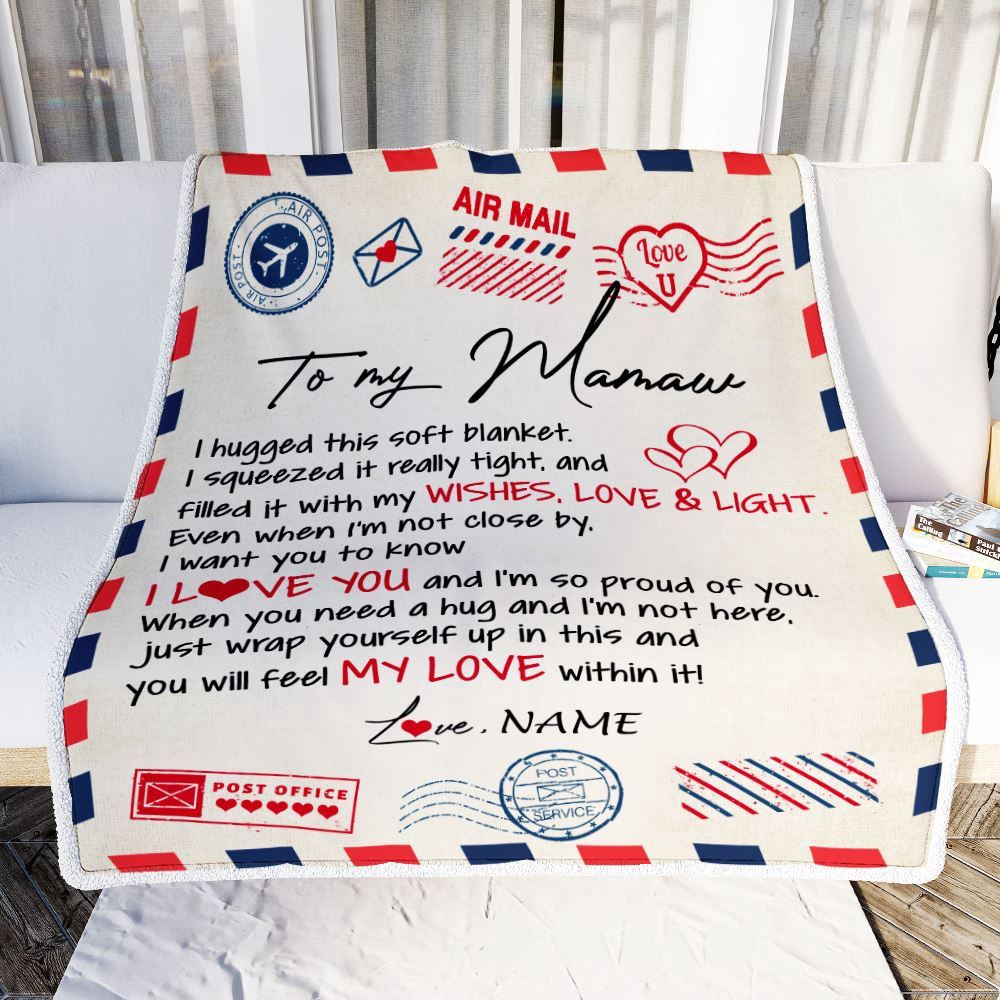 AIR POST
AIR POST
AIR MAIL
Love
U
To my Mamaw
I hugged this soft blanket.
I squeezed it really tight, and
filled it with my WISHES, LOVE & LIGHT.
Even when I'm not close by,
I want you to know
I LOVE YOU and I'm so proud of you.
When you need a hug and I'm not here,
just wrap yourself up in this and
you will feel MY LOVE within it!
Love, NAME
POST OFFICE
POST
SERVICE
The
Calling
Paul